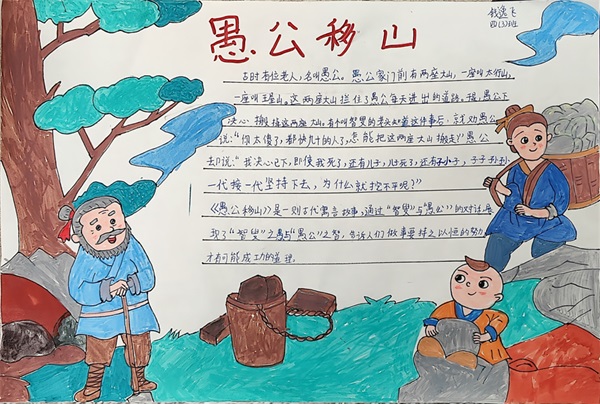 愚公移山
钱逸飞
四(3)班
古时有位老人，名叫愚公。愚公家门前有两座大山，一座叫太行山，
一座叫王屋山。这两座大山拦住了愚公每天进出的道路。愚公下
决心搬掉这两座大山。有个叫智叟的老头知道这件事后，就劝愚公
说："你太傻了，都快九十的人了，怎能把这两座大山搬走？"愚公
却说："我决心已下，即使我死了，还有儿子，儿子死了，还有孙子，子子孙孙
一代接一代坚持下去，为什么就挖不平呢？"
《愚公移山》是一则古代寓言故事，通过"智叟"与"愚公"的对话，
现了"智叟"之愚与"愚公"之智，告诉人们做事要持之以恒的努
才有可能成功的道理。